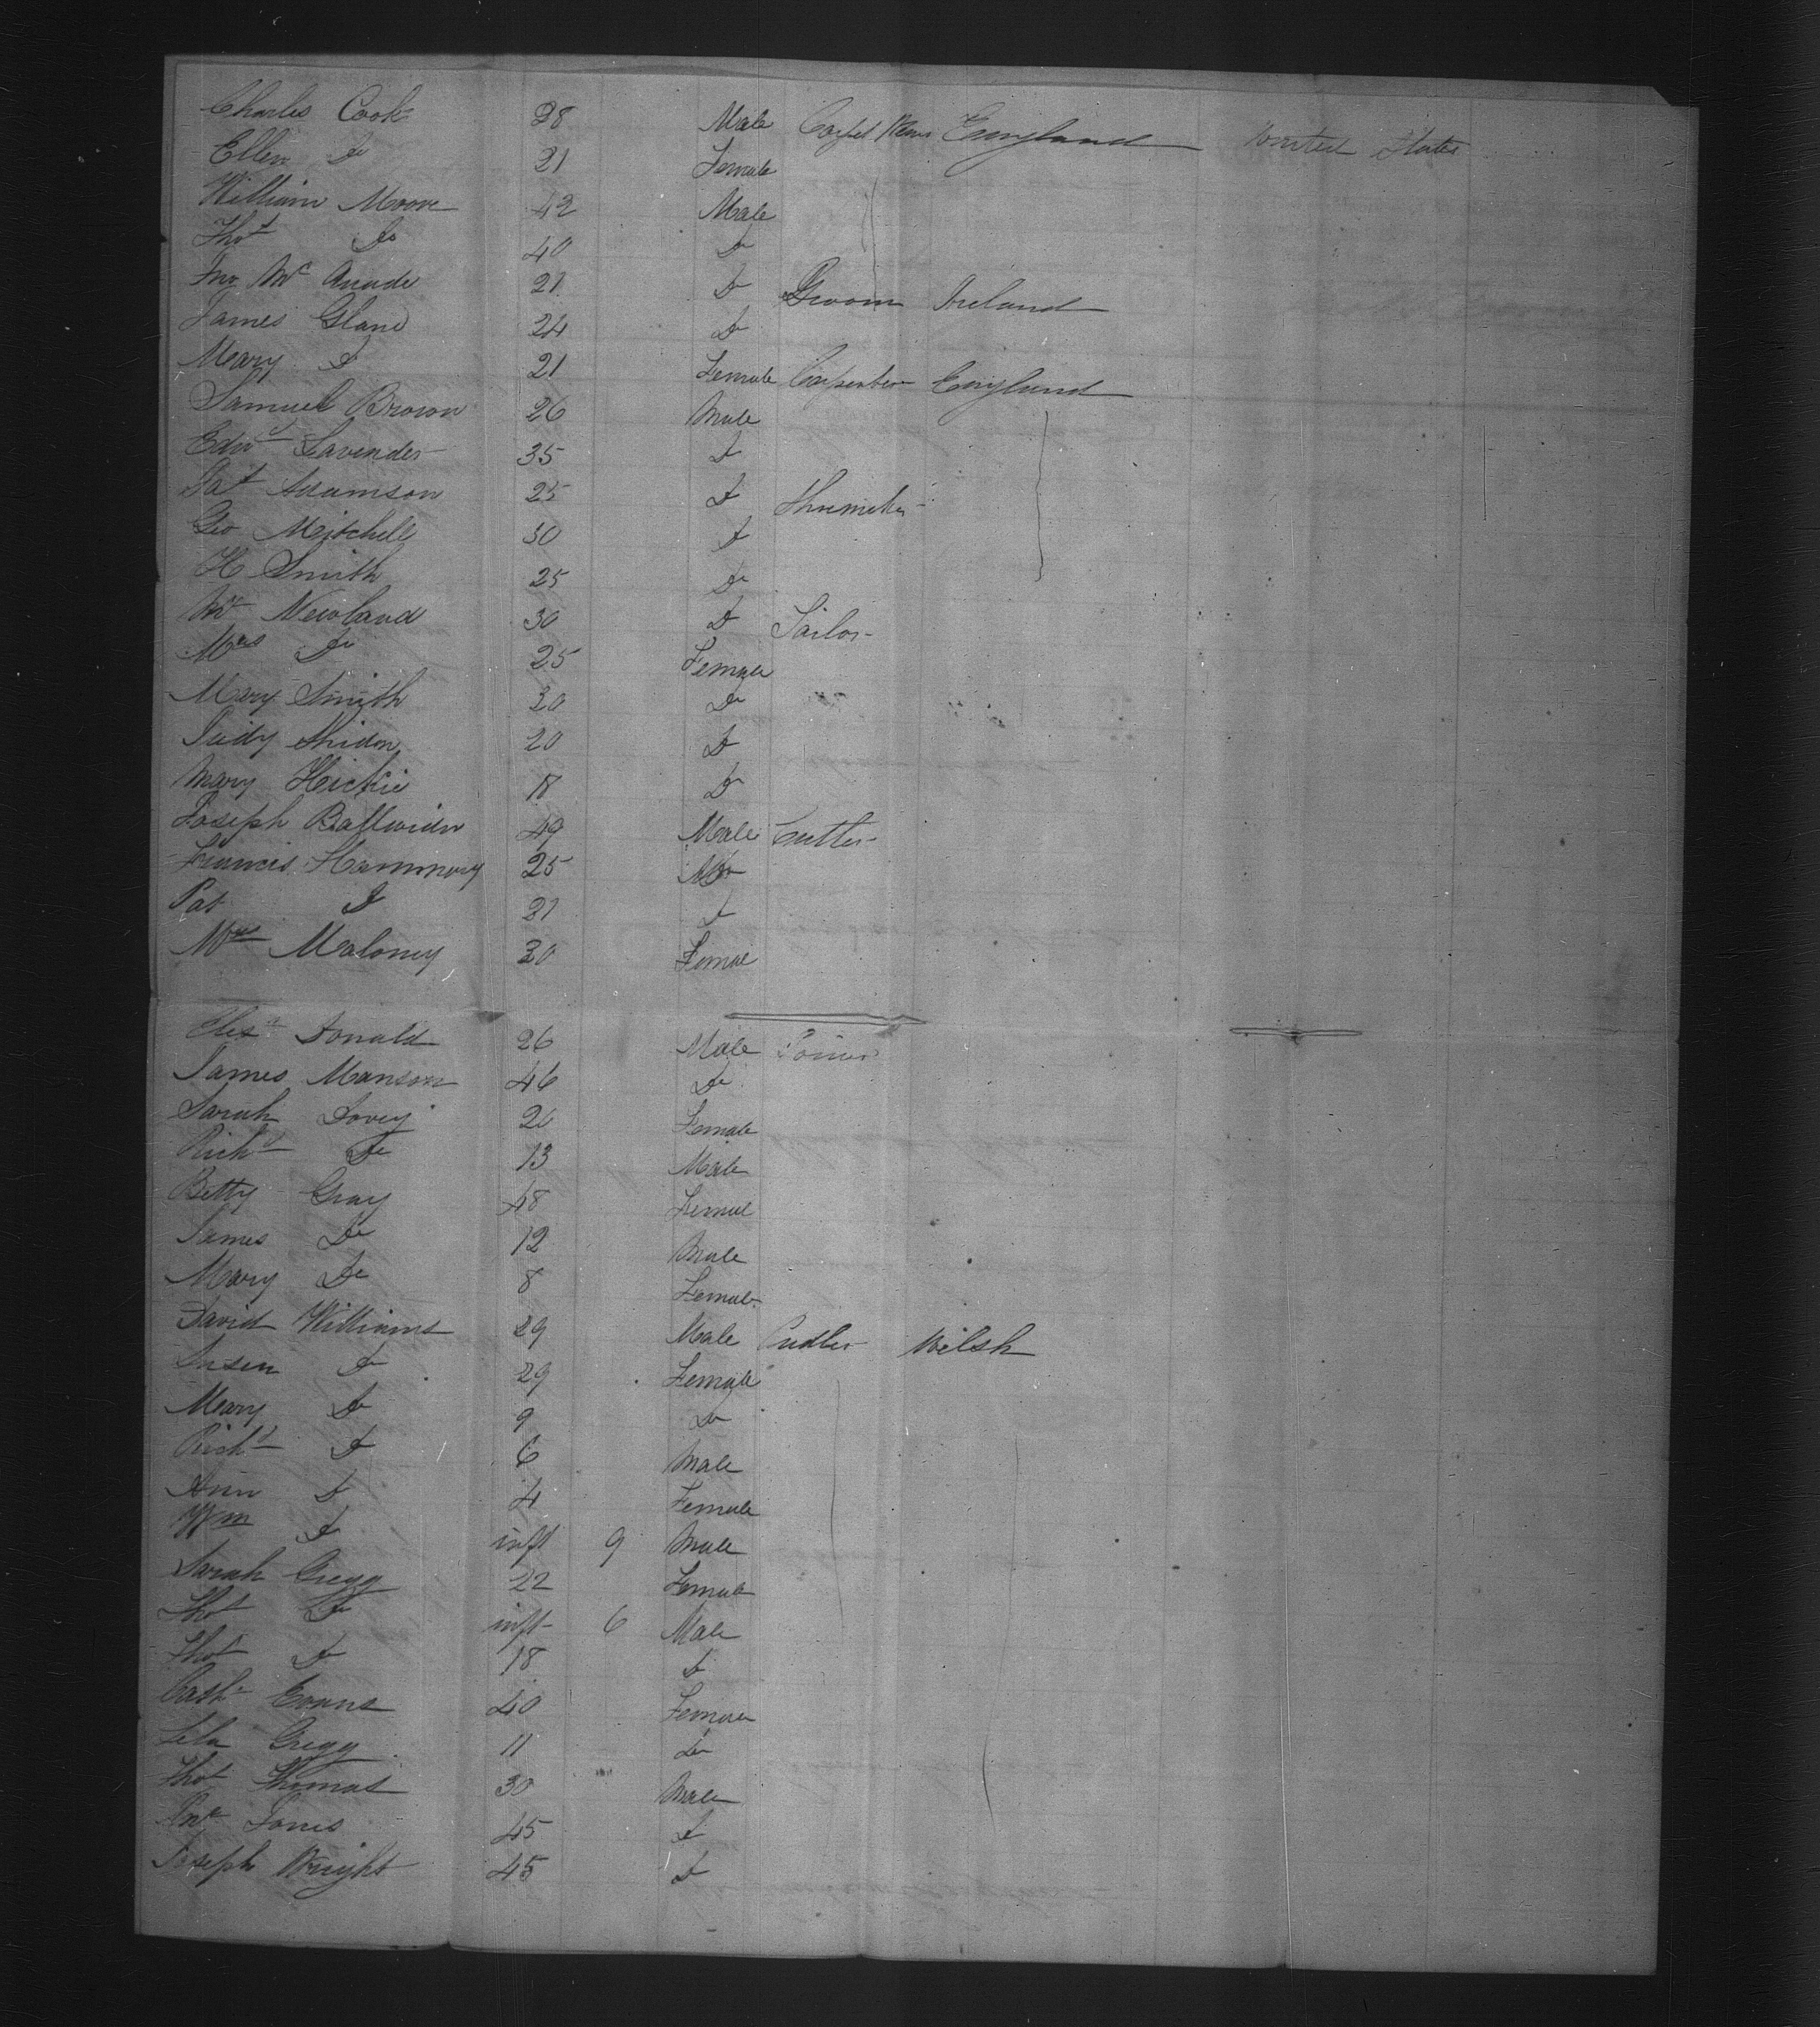 Charles Cook 28 Male Carpet England United States
Ellen Do 21 Female
William Moore 42 Male
Thos Do 40 Do
Jno Mc 21 Do Groom Ireland
James Gland 24 Do
Mary Do 21 Female Carpenter England
Samuel Brown 26 Male
Edwd Lavender 35 Do
Pat Adamson 25 Do Shoemaker
Geo Mitchell 30 Do
H Smith 25 Do
Mr Newland 30 Do
Mrs Do 25 Female
Mary Smith 20 Do
Judy 20 Do
Mary Hickie 18 Do
Joseph 49 Male Cutler
Francis 25 Do
Pat Do 21 Do
Mrs Maloney 30 Female
Alexr Donald 26 Male Joiner
James Manson 46 Do
Sarah 20 Female
Richd Do 13 Male
Betty Gray 48 Female
James Do 12 Male
Mary Do 8 Female
David Williams 29 Male Welsh
Susen Do 29 Female
Mary Do 9 Do
Richd Do 6 Male
Ann Do 4 Female
Wm Do inft 9 Male
Sarah Gregg 22 Female
Thos Do inft 6 Male
Thos Do 18 Do
Cath Evans 40 Female
Gregg 11 Do
Thos Thomas 30 Male
Jones 45 Do
Joseph Wright 45 Do